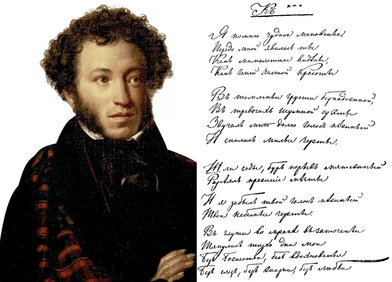 Къ ***
Я помню чудное мгновенье
Передо мной явилась ты
Какъ мимолетное видѣнье
Какъ геній чистой красоты
Въ томленьи грусти безнадежной
Въ тревогахъ шумной суеты
Звучалъ мнѣ долго голосъ нѣжный
И снились милыя черты.
Шли годы, бурь порывъ мятежный
Разсѣялъ прежнія мечты
И я забылъ твой голосъ нѣжный
Твои небесныя черты.
Въ глуши во мракѣ заточенья
Тянулись тихо дни мои
Безъ божества, безъ вдохновенья
Безъ слезъ, безъ жизни, безъ любви